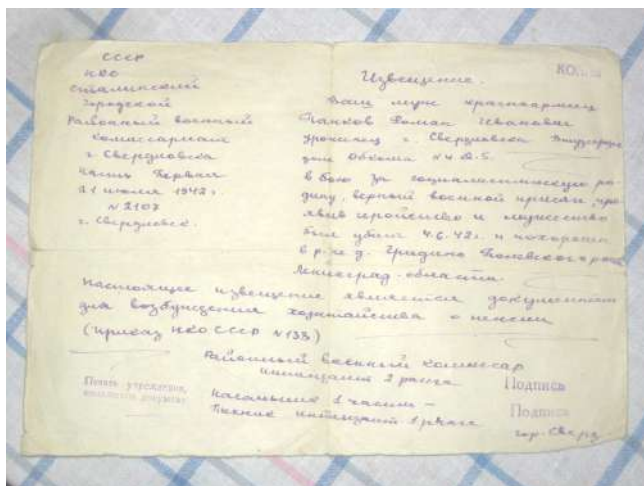 СССР
НКО
Сталинский
Городской
Районный военный
комиссариат
г. Свердловска
часть Первая
21 июля 1942 г.
№ 2107
г. Свердловск.
КОПИЯ
Извещение.
Ваш муж красноармеец
Панков Роман Иванович
уроженец г. Свердловска
дом Обкома №4
в бою за социалистическую ро-
дину, верный военной присяге, про-
явив геройство и мужество
был убит 4.6.42 г. и похоронен
в р-не д. Гридино
Ленинград. области.
Настоящее извещение является документом
для возбуждения ходатайства о пенсии
(приказ НКО СССР №138)
Районный военный комиссар
интендант 2 ранга
Подпись
Печать учреждения,
документ
Начальник 1 части —
Техник интендант 1 ранга
Подпись
гор. Сверд